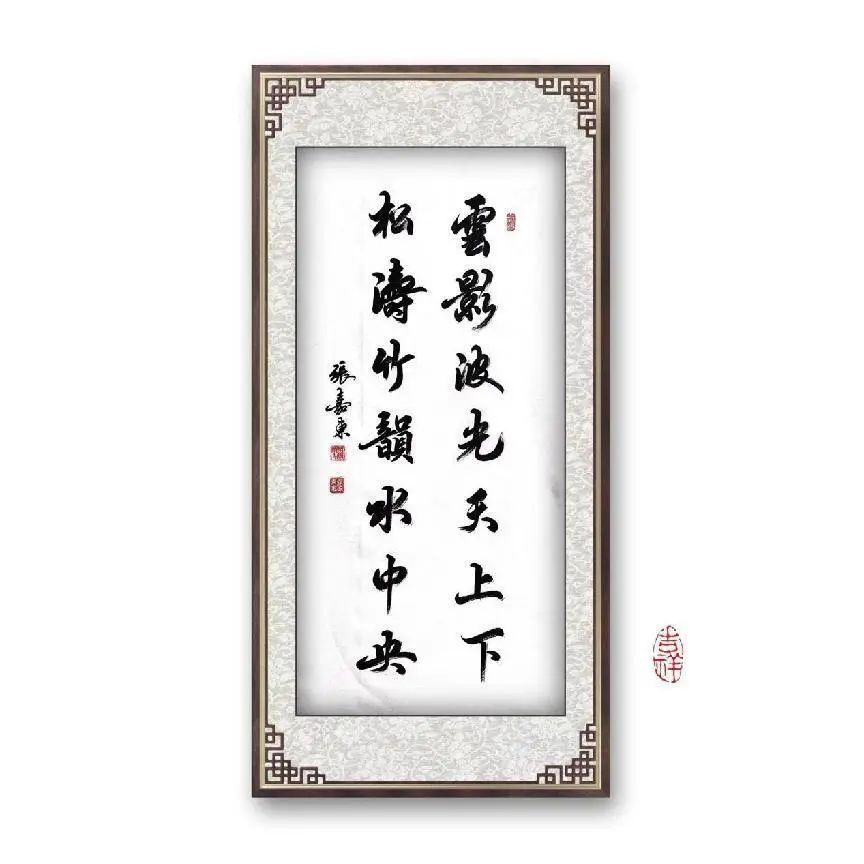 雲影波光天上下
松濤竹韻水中央
張嘉東
吉祥